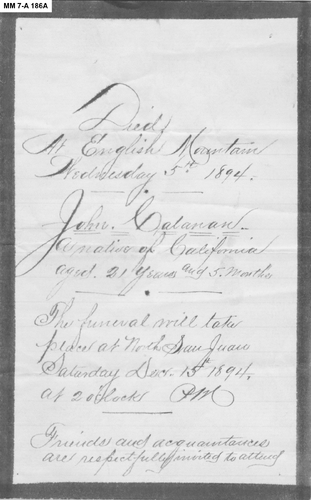 MM 7-A 186A
Died,
At English Mountain
Wednesday 5th 1894.
John. Calanan
a native of California
aged. 21 Years and 5. months
The funeral will take
place at North San Juan
Saturday Dec. 15th 1894.
at 2 o'clock PM
Friends and acquaintances
are respectfully invited to attend